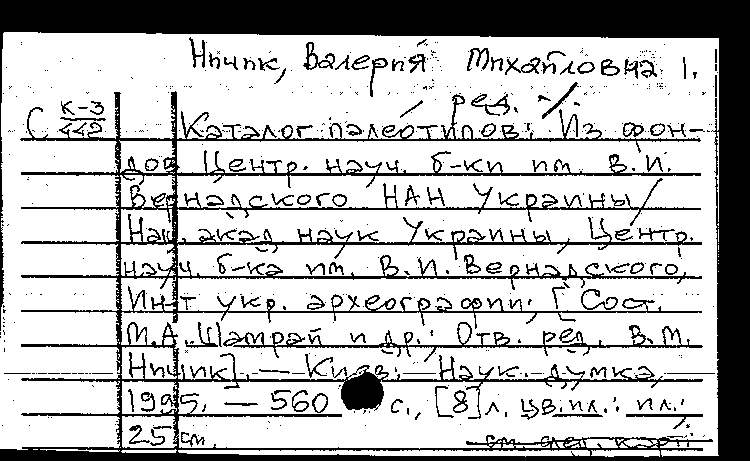 Ничик, Валерия Михайловна 1.
ред.
С К-3/442 Каталог палеотипов: Из фон-
дов Центр. науч. б-ки им. В.И.
Вернадского НАН Украины/
Нац. акад. наук Украины, Центр.
науч. б-ка им. В.И. Вернадского,
Ин-т укр. археографии; [Сост.
М.А. Шамрай и др.; Отв. ред. В.М.
Ничик]. — Киев: Наук. думка,
1995. — 560 с., [8] л. цв. ил.: ил.;
25 см.
см. след. карт.